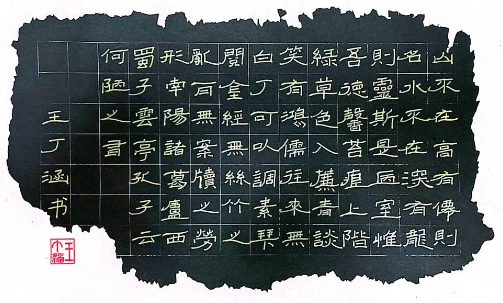 山不在高有僊則
名水不在深有龍
則靈斯是陋室惟
吾德馨苔痕上階
緑草色入簾青談
笑有鴻儒往来無
白丁可以調素琴
閱金經無絲竹之
亂耳無案牘之勞
形南陽諸葛廬西
蜀子雲亭孔子云
何陋之有
王丁涵书